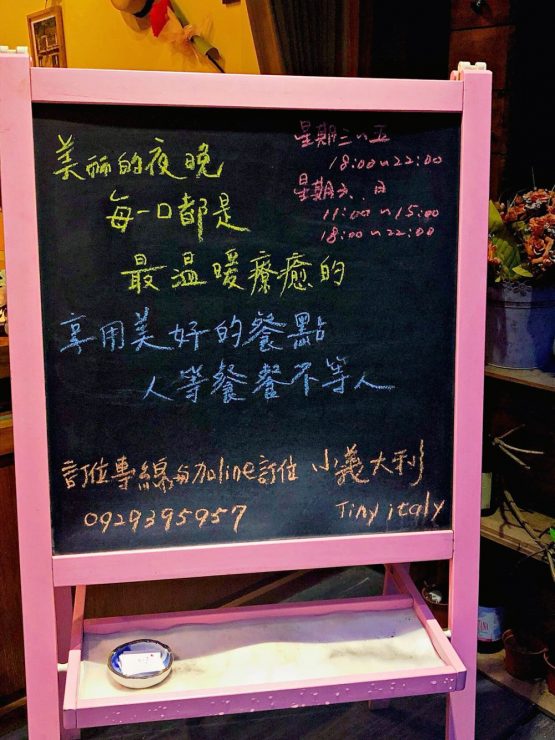 美丽的夜晚
每一口都是
最溫暖療癒的
享用美好的餐點
人等餐餐不等人
星期二~五
18:00~22:00
星期六、日
11:00~15:00
18:00~22:00
訂位專線勿加line訂位
0929395957
小義大利
Tiny italy